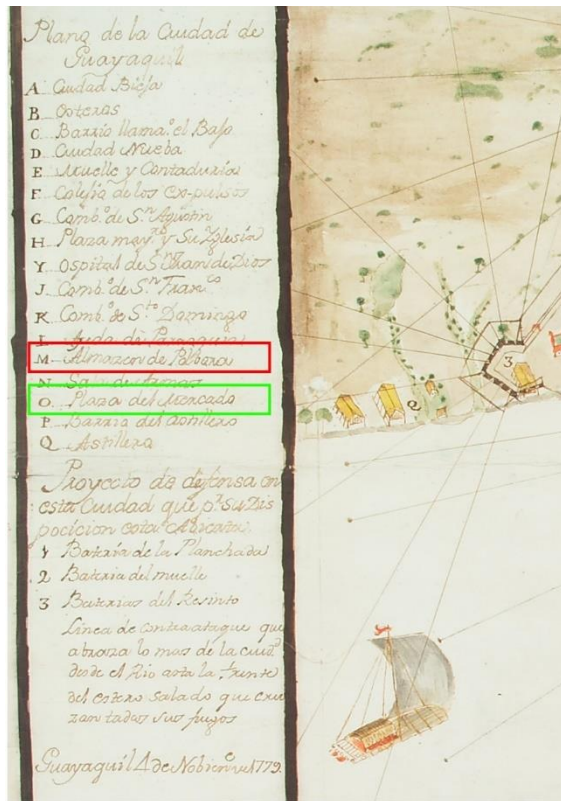 Plano de la Ciudad de
Guayaquil
A Ciudad Bieja
B Esteros
C Barrio llama.º el Bajo
D Ciudad Nueba
E Muelle y Contaduria
F Colejio de los Expulsos
G Comb.º de S.n Agustin
H Plaza may.r y Su Yglesia
Y Ospital de S.n Juan de Dios
J Comb.º de S.n Fran.co
K Comb.º de S.to Domingo
L
M Almazen de Polbora
N Sala de Armas
O Plaza del Mercado
P Barrio del Astillero
Q Astillero
Proyecto de defensa en
esta Ciudad que p.r su Dis
posicion esta
1 Bateria de la Planchada
2 Bateria del muelle
3 Baterias del Resinto
Linea de contraataque que
abraza lo mas de la ciud.d
desde el Rio asta la frente
del estero salado que cru
zan todos sus fuegos
Guayaquil 4 de Nobiembre 1779.
Q
3